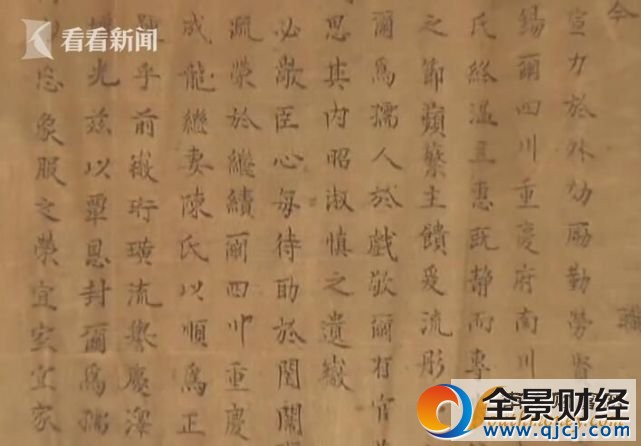 宣力於外効勵勤勞賢
爾四川重慶府南川
氏終溫且惠既靜而專
之節蘋蘩主饋爰流彤
爾為孺人於戲敬爾有官
思其內昭淑慎之遺徽
必敬臣心每待助於閨闈
疏榮於繼續爾四川重慶
成龍繼妻陳氏以順為正
乎前徽珩璜流譽慶澤
光茲以覃恩封爾為孺
象服之榮宜室宜家
看看新闻
全景财经
www.qjcj.com